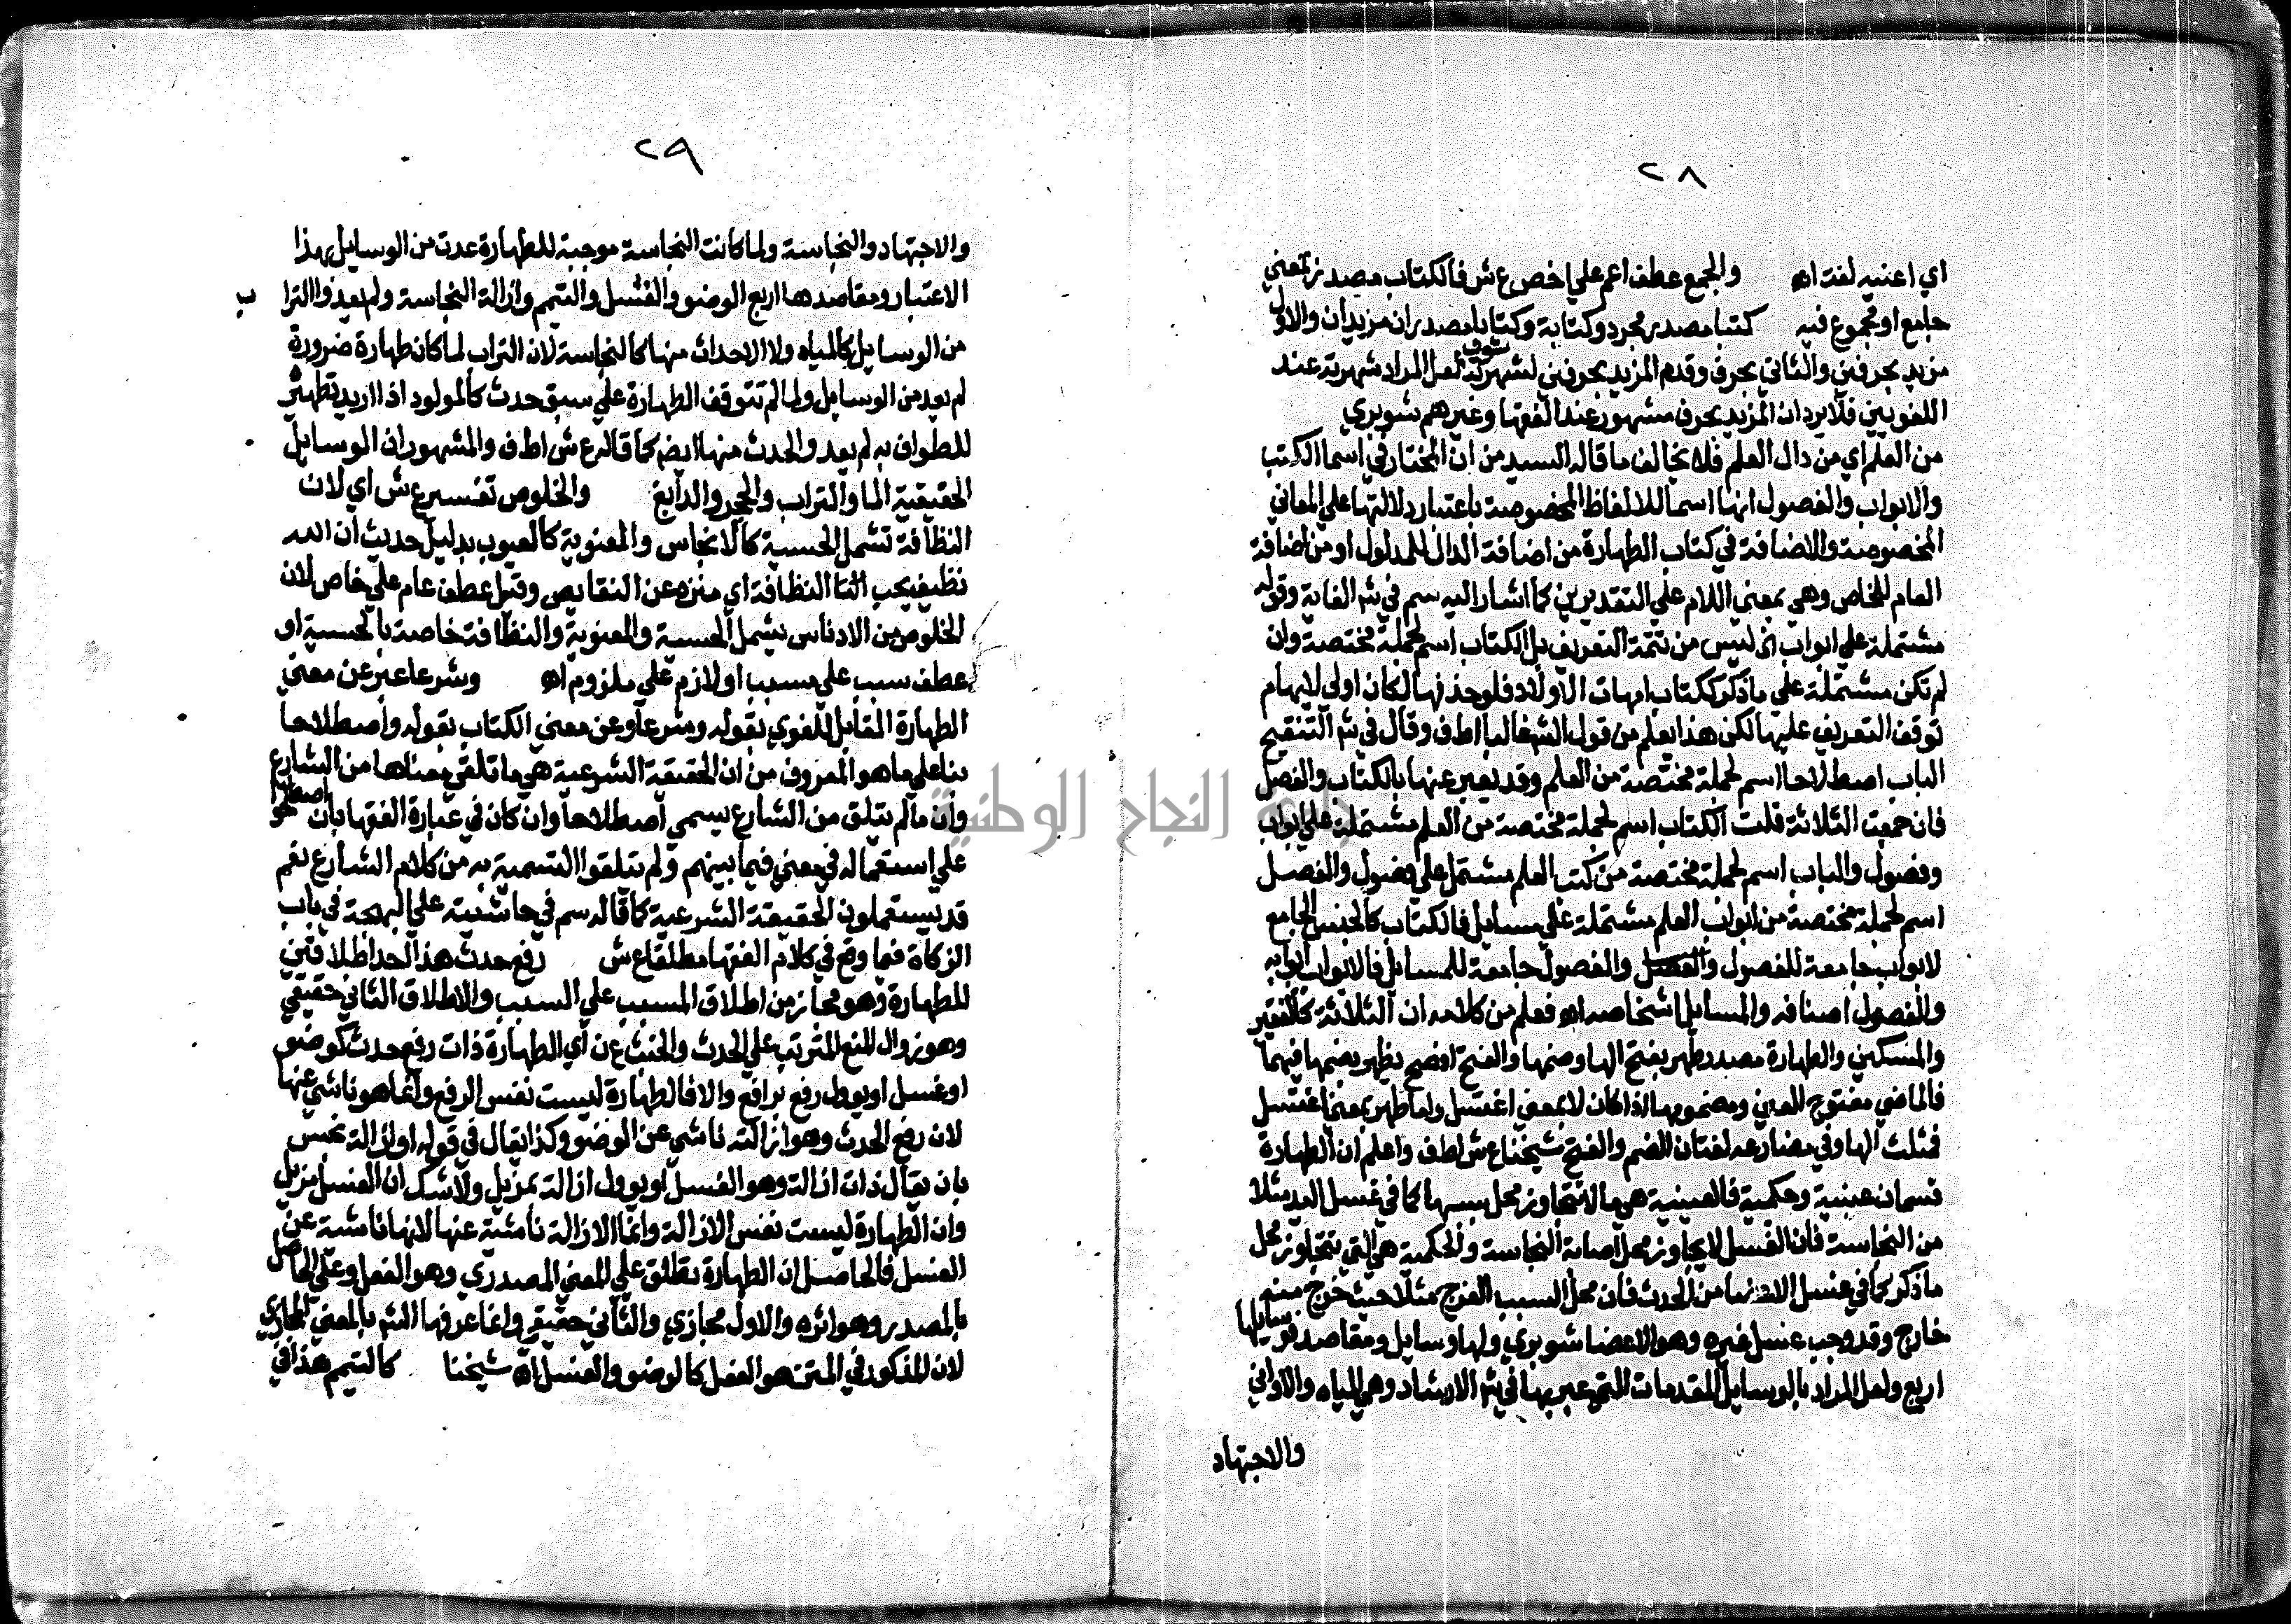 ٢٨
اي اعنيه لغة اه والجمع عطف اعم علي اخص ع ش فالكتاب مصدر بمعني
جامع او مجموع فيه كتبا مصدر مجرد وكتابة وكتابا مصدران مزيدان والاول
مزيد بحرفين والثاني بحرف وقدم المزيد بحرفين لشهرته لعل المراد شهرته عند
شوبري
اللغويين فلا يرد ان المزيد بحرف مشهور عند الفقها وغيرهم شوبري
من العلم اي من دال العلم فلا يخالف ما قاله السيد من ان المختار في اسما الكتب
والابواب والفصول انها اسما للالفاظ المخصوصة باعتبار دلالتها علي المعاني
المخصوصة والاضافة في كتاب الطهارة من اضافة الدال للمدلول او من اضافة
العام للخاص وهي بمعني اللام علي التقديرين كما اشار اليه سم في شم الغاية وقوله
مشتملة علي ابواب الخ ليس من تتمة التعريف بل الكتاب اسم لجملة مختصة وان
لم تكن مشتملة علي ما ذكر ككتاب امهات الاولاد فلو حذفها لكان اولي لايهام
توقف التعريف عليها لكن هذا يعلم من قول الشم غالبا اطف وقال في شم التنقيح
الباب اصطلاحا اسم لجملة مختصة من العلم وقد يعبر عنها بالكتاب والفصل
فان جمعت الثلاثة قلت الكتاب اسم لجملة مختصة من العلم مشتملة علي ابواب
وفصول والباب اسم لجملة مختصة من كتب العلم مشتمل علي فصول والفصل
اسم لجملة مختصة من ابواب العلم مشتملة علي مسايل فالكتاب كالجنس الجامع
لابواب جامعة للفصول والفصل والفصول جامعة للمسايل فالابواب انواعه
والفصول اصنافه والمسايل اشخاصه اه فعلم من كلامه ان الثلاثة كالفقير
والمسكين والطهارة مصدر طهر بفتح الها وضمها والفتح افصح يطهر بضمها فيهما
فالماضي مفتوح العين ومضمومها اذا كان لا بمعني اغتسل واما طهر بمعني اغتسل
فمثلث الها وفي مضارعه لغتان الضم والفتح شيخنا ع ش اطف واعلم ان الطهارة
قسمان عينية وحكمية فالعينية هي ما لا تتجاوز محل سببها كما في غسل اليد مثلا
من النجاسة فان الغسل لا يجاوز محل اصابة النجاسة والحكمية هي التي تتجاوز محل
ما ذكر كما في غسل الاعضا من الحدث فان محل السبب الفرج مثلا حيث خرج منه
خارج وقد وجب غسل غيره وهو الاعضا شوبري ولها وسايل ومقاصد فوسايلها
اربع ولعل المراد بالوسايل المقدمات التي عبر بها في شم الارشاد وهي المياه والاواني
والاجتهاد
٢٩
والاجتهاد والنجاسة ولما كانت النجاسة موجبة للطهارة عدت من الوسايل بهذا
الاعتبار ومقاصدها اربع الوضو والغسل والتيمم وازالة النجاسة ولم يعدوا الترا ب
من الوسايل كالمياه ولا الاحداث منها كالنجاسة لان التراب لما كان طهارة ضرورة
لم يعد من الوسايل ولما لم تتوقف الطهارة علي سبق حدث كالمولود اذا اريد تطهيره
للطواف به لم يعد والحدث منها ايضا كما قاله ع ش اطف والمشهور ان الوسايل
الحقيقية الما والتراب والحجر والدابغ والخلوص تفسير ع ش اي لان
النظافة تشمل الحسية كالانجاس والمعنوية كالعيوب بدليل حديث ان الله
نظيف يحب النظافة اي منزه عن النقايص وقيل عطف عام علي خاص لان
الخلوص من الادناس يشمل الحسية والمعنوية والنظافة خاصة بالحسية او
عطف سبب علي مسبب او لازم علي ملزوم اه وشرعا عبر عن معني
الطهارة المقابل للغوي بقوله وشرعا وعن معني الكتاب بقوله واصطلاحا
بنا علي ما هو المعروف من ان الحقيقة الشرعية هي ما تلقي معناها من الشارع
وان ما لم يتلق من الشارع يسمي اصطلاحا وان كان في عبارة الفقها بان اصطلحوا
علي استعماله في معني فيما بينهم ولم يتلقوا التسمية به من كلام الشارع نعم
قد يستعملون الحقيقة الشرعية كما قاله سم في حاشيته علي البهجة في باب
الزكاة فيما وقع في كلام الفقها مطلقا ع ش رفع حدث هذا احد اطلاقين
للطهارة وهو مجاز من اطلاق المسبب علي السبب والاطلاق الثاني حقيقي
وهو زوال المنع المترتب علي الحدث والخبث ع ن اي الطهارة ذات رفع حدث كوضو
او غسل او يوول رفع برافع والا فالطهارة ليست نفس الرفع وانما هو ناشي عنها
لان رفع الحدث وهو ازالته ناشي عن الوضو وكذا يقال في قوله او ازالة نجس
بان يقال ذات ازالة وهو الغسل او يوول ازالة بمزيل ولا شك ان الغسل مزيل
وان الطهارة ليست نفس الازالة وانما الازالة ناشية عنها لانها ناشية عن
الغسل فالحاصل ان الطهارة تطلق علي المعني المصدري وهو الفعل وعلي الحاصل
بالمصدر وهو اثره والاول مجازي والثاني حقيقي وانما عرفها الشم بالمعني المجازي
لان المذكور في المتن هو الفعل كالوضو والغسل اه شيخنا كالتيمم هذا في
جامعة النجاح الوطنية